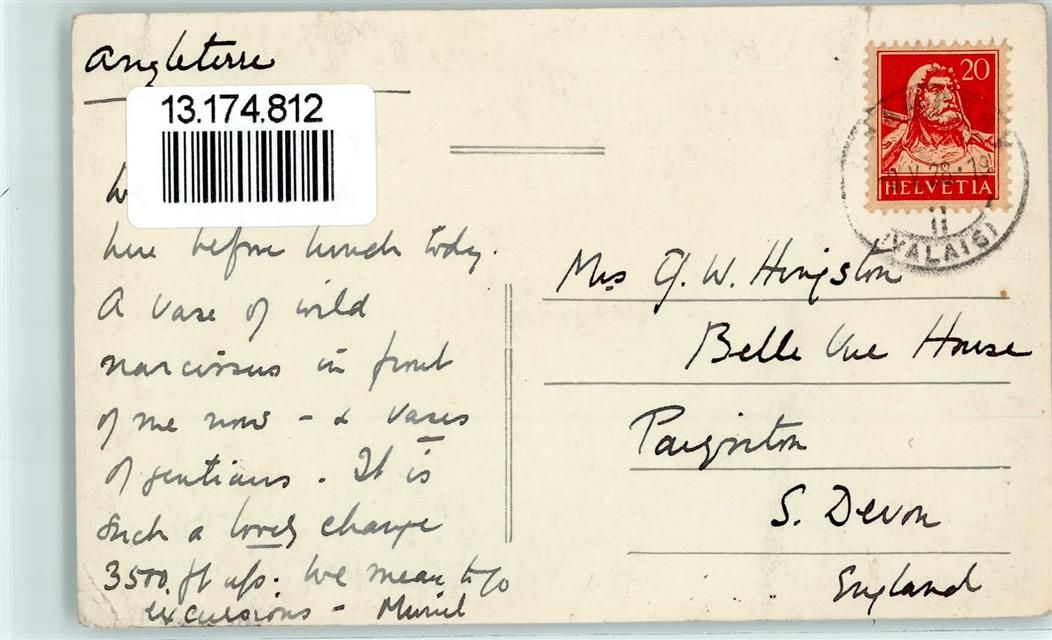 Angleterre
13.174.812
here before lunch today.
A vase of wild
narcissus in front
of me now - & vases
of gentians. It is
such a lovely change
3500 ft up. We mean to go
excursions - Muriel
20
HELVETIA
(VALAIS)
Mrs G. W. Hingston
Belle Vue House
Paignton
S. Devon
England